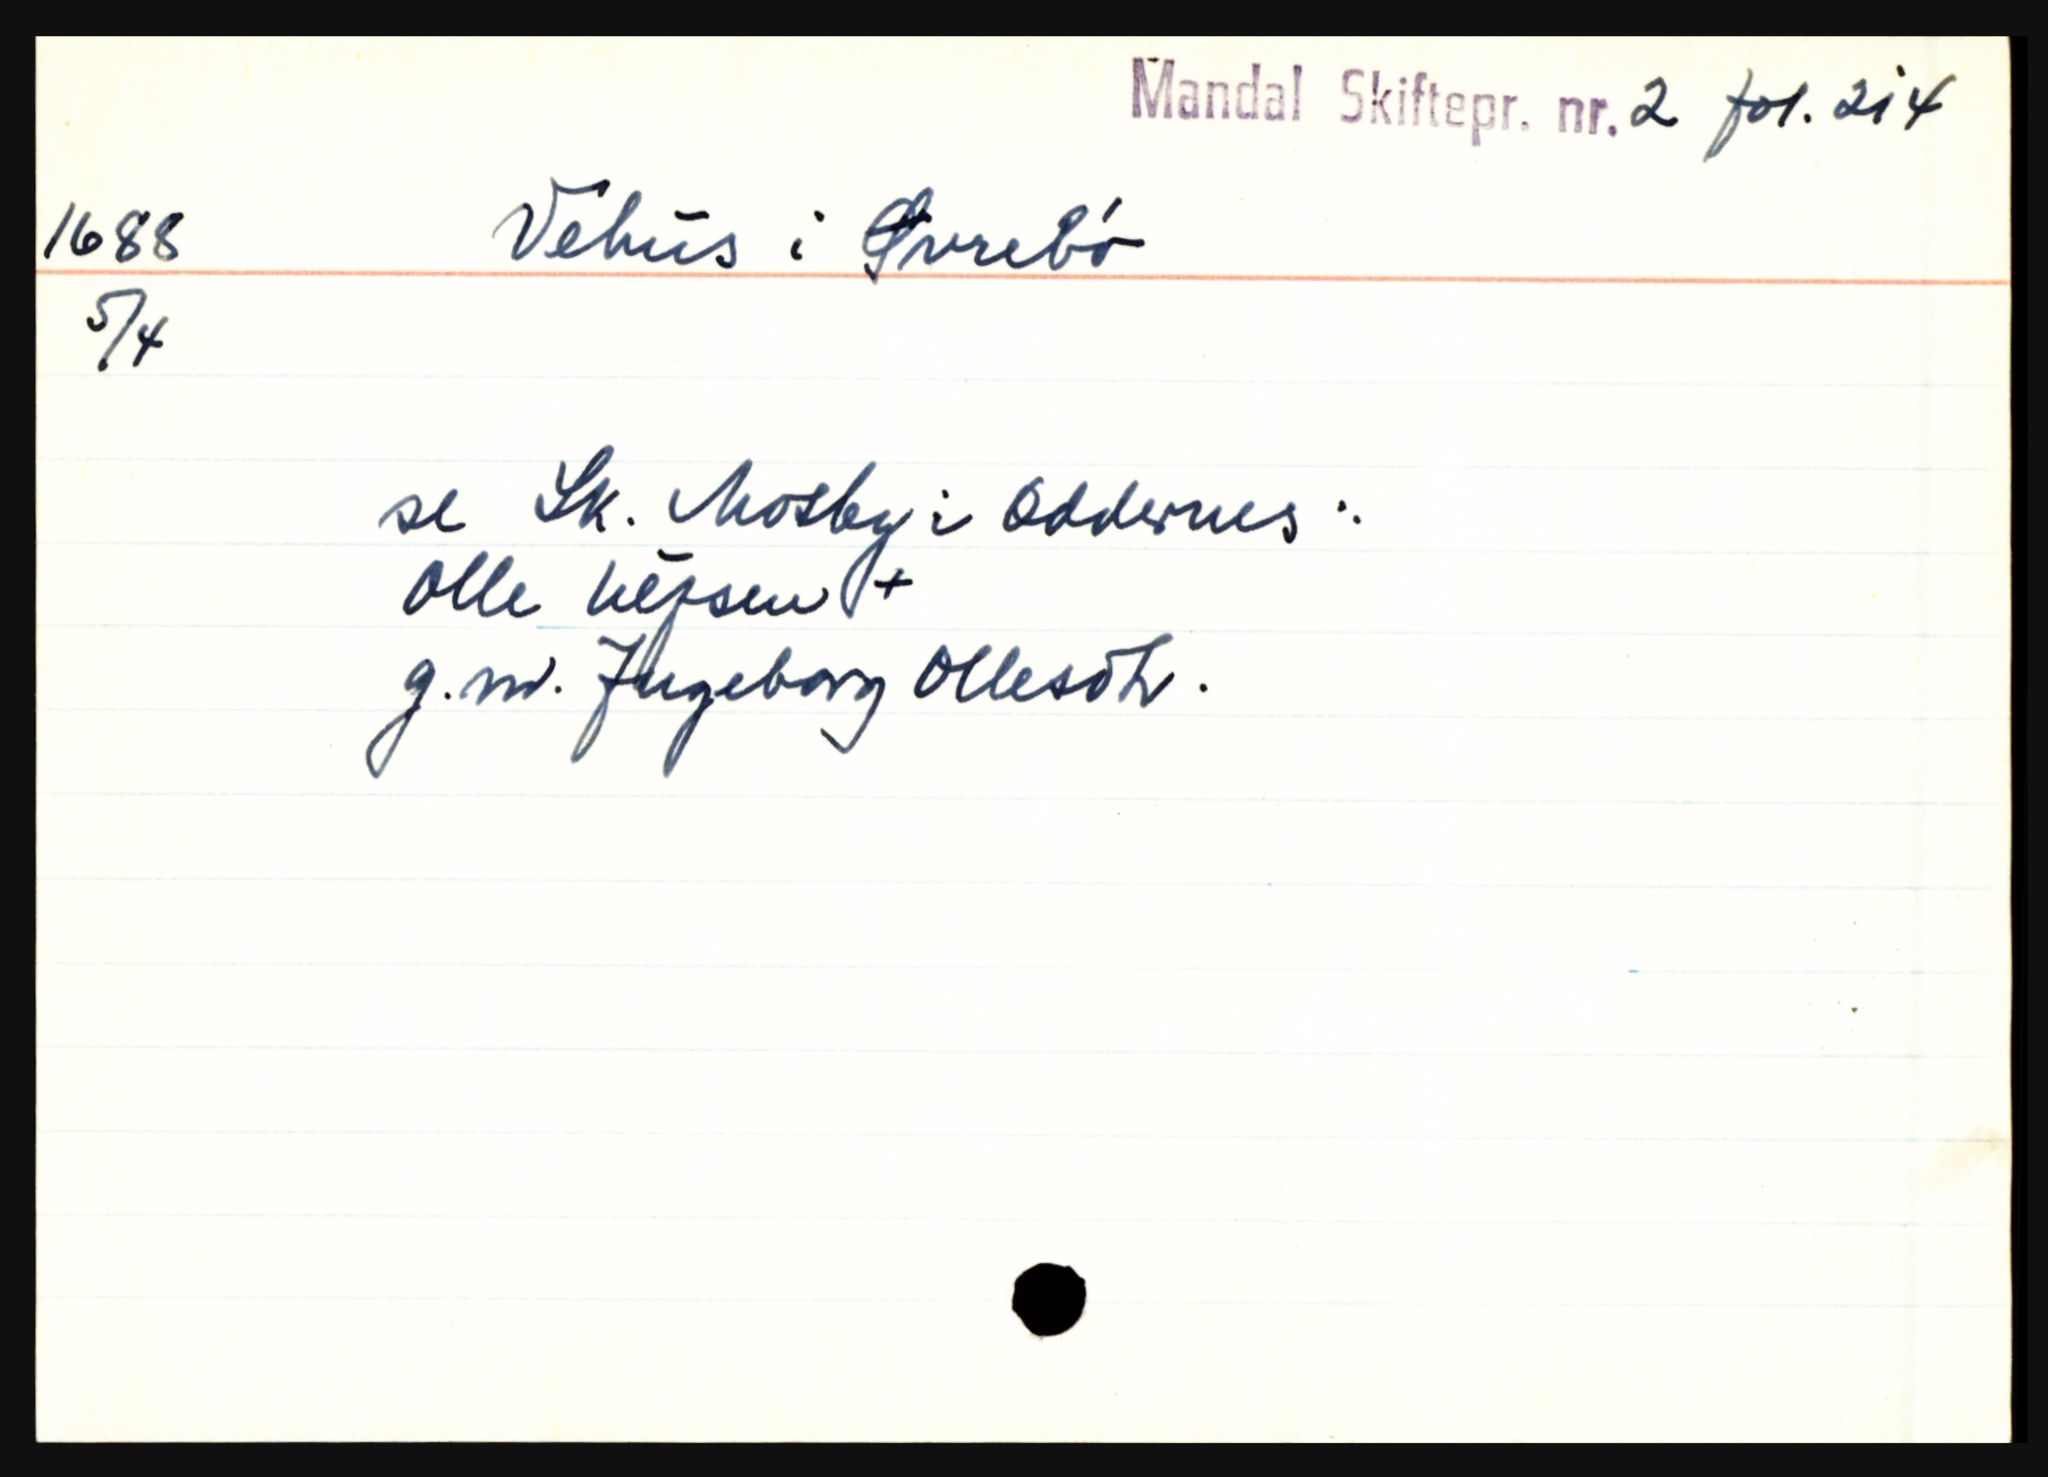 Mandal Skiftepr. nr. 2 fol. 214
1688 Vehus i Øvrebö
5/4
se Sk. Mosby i Oddernes:
Olle +
g.m. Jngeborg Ollesdtr.